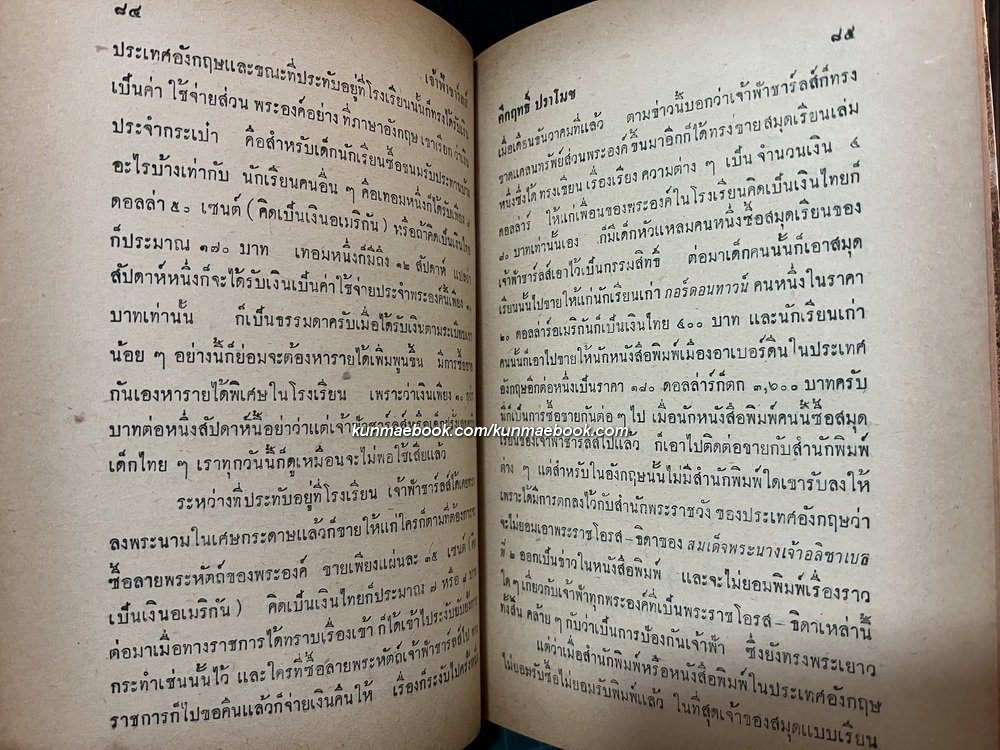 ๘๔
เจ้าฟ้าชาร์ลส์
ประเทศอังกฤษและขณะที่ประทับอยู่ที่โรงเรียนนั้นก็ทรงได้รับเงิน
เป็นค่า ใช้จ่ายส่วน พระองค์อย่าง ที่ภาษาอังกฤษ เขาเรียก ว่าเงิน
ประจำกระเป๋า คือสำหรับเด็กนักเรียนซื้อขนมรับประทานบ้าง
อะไรบ้างเท่ากับ นักเรียนคนอื่น ๆ คือเทอมหนึ่งก็ได้รับเพียง ๘
ดอลล่า ๕๐ เซนต์ (คิดเป็นเงินอเมริกัน) หรือถ้าคิดเป็นเงินไทย
ก็ประมาณ ๑๗๐ บาท เทอมหนึ่งก็มีถึง ๑๒ สัปดาห์ แปลว่า
สัปดาห์หนึ่งก็จะได้รับเงินเป็นค่าใช้จ่ายประจำพระองค์นี้เพียง ๑๐
บาทเท่านั้น ก็เป็นธรรมดาครับเมื่อได้รับเงินตามระเบียบ
น้อย ๆ อย่างนี้ก็ย่อมจะต้องหารายได้เพิ่มพูนขึ้น มีการซื้อขาย
กันเองหารายได้พิเศษในโรงเรียน เพราะว่าเงินเพียง ๑๐ กว่า
บาทต่อหนึ่งสัปดาห์นี้อย่าว่าแต่เจ้าฟ้าชาร์ลส์หรือเด็กฝรั่งเลย
เด็กไทย ๆ เราทุกวันนี้ก็ดูเหมือนจะไม่พอใช้เสียแล้ว
ระหว่างที่ประทับอยู่ที่โรงเรียน เจ้าฟ้าชาร์ลส์ได้เคยทรง
ลงพระนามในเศษกระดาษแล้วก็ขายให้แก่ใครก็ตามที่ต้องการจะ
ซื้อลายพระหัตถ์ของพระองค์ ขายเพียงแผ่นละ ๓๕ เซนต์ (คิด
เป็นเงินอเมริกัน) คิดเป็นเงินไทยก็ประมาณ ๗ หรือ ๘ บาท
ต่อมาเมื่อทางราชการได้ทราบเรื่องเข้า ก็ได้เข้าไประงับยับยั้งการ
กระทำเช่นนั้นไว้ และใครที่ซื้อลายพระหัตถ์เจ้าฟ้าชาร์ลส์ไป ทาง
ราชการก็ไปขอคืนแล้วก็จ่ายเงินคืนให้ เรื่องก็ระงับไปครั้งหนึ่ง
๘๕
คึกฤทธิ์ ปราโมช
เมื่อเดือนธันวาคมที่แล้ว ตามข่าวนี้บอกว่าเจ้าฟ้าชาร์ลส์ก็ทรง
ขาดแคลนทรัพย์ส่วนพระองค์ ขึ้นมาอีกก็ได้ทรงขายสมุดเรียนเล่ม
หนึ่งซึ่งได้ ทรงเขียน เรื่องเรียง ความต่าง ๆ เป็น จำนวนเงิน ๔
ดอลล่าร์ ให้แก่เพื่อนของพระองค์ในโรงเรียนคิดเป็นเงินไทยก็
๘๐ บาทเท่านั้นเอง ก็มีเด็กหัวแหลมคนหนึ่งซื้อสมุดเรียนของ
เจ้าฟ้าชาร์ลส์เอาไว้เป็นกรรมสิทธิ์ ต่อมาเด็กคนนั้นก็เอาสมุด
เรียนนั้นไปขายให้แก่นักเรียนเก่า กอร์ดอนทาวน์ คนหนึ่งในราคา
๒๐ ดอลล่าร์อเมริกันก็เป็นเงินไทย ๔๐๐ บาท และนักเรียนเก่า
คนนั้นก็เอาไปขายให้นักหนังสือพิมพ์เมืองอาเบอร์ดีนในประเทศ
อังกฤษอีกต่อหนึ่งเป็นราคา ๑๘๐ ดอลล่าร์ก็ตก ๓,๖๐๐ บาทครับ
นี่ก็เป็นการซื้อขายกันต่อ ๆ ไป เมื่อนักหนังสือพิมพ์คนนี้ซื้อสมุด
เรียนของเจ้าฟ้าชาร์ลส์ไปแล้ว ก็เอาไปติดต่อขายกับสำนักพิมพ์
ต่าง ๆ แต่สำหรับในอังกฤษนั้นไม่มีสำนักพิมพ์ใดเขารับลงให้
เพราะได้มีการตกลงไว้กับสำนักพระราชวัง ของประเทศอังกฤษว่า
จะไม่ยอมเอาพระราชโอรส – ธิดาของ สมเด็จพระนางเจ้าอลิซาเบธ
ที่ ๒ ออกเป็นข่าวในหนังสือพิมพ์ และจะไม่ยอมพิมพ์เรื่องราว
ใด ๆ เกี่ยวกับเจ้าฟ้าทุกพระองค์ที่เป็นพระราชโอรส – ธิดาเหล่านี้
ทั้งสิ้น คล้าย ๆ กับว่าเป็นการป้องกันเจ้าฟ้า ซึ่งยังทรงพระเยาว์
แต่ว่าเมื่อสำนักพิมพ์หรือหนังสือพิมพ์ในประเทศอังกฤษ
ไม่ยอมรับซื้อไม่ยอมรับพิมพ์แล้ว ในที่สุดเจ้าของสมุดแบบเรียน
kunmaebook.com/kunmaebook.com